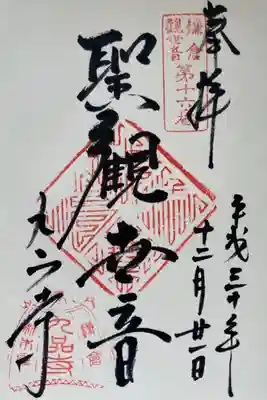 奉拝
平成三十年
十二月廿一日
鎌倉
観世音
第十六番
聖観世音
九品寺
鎌倉
九品寺